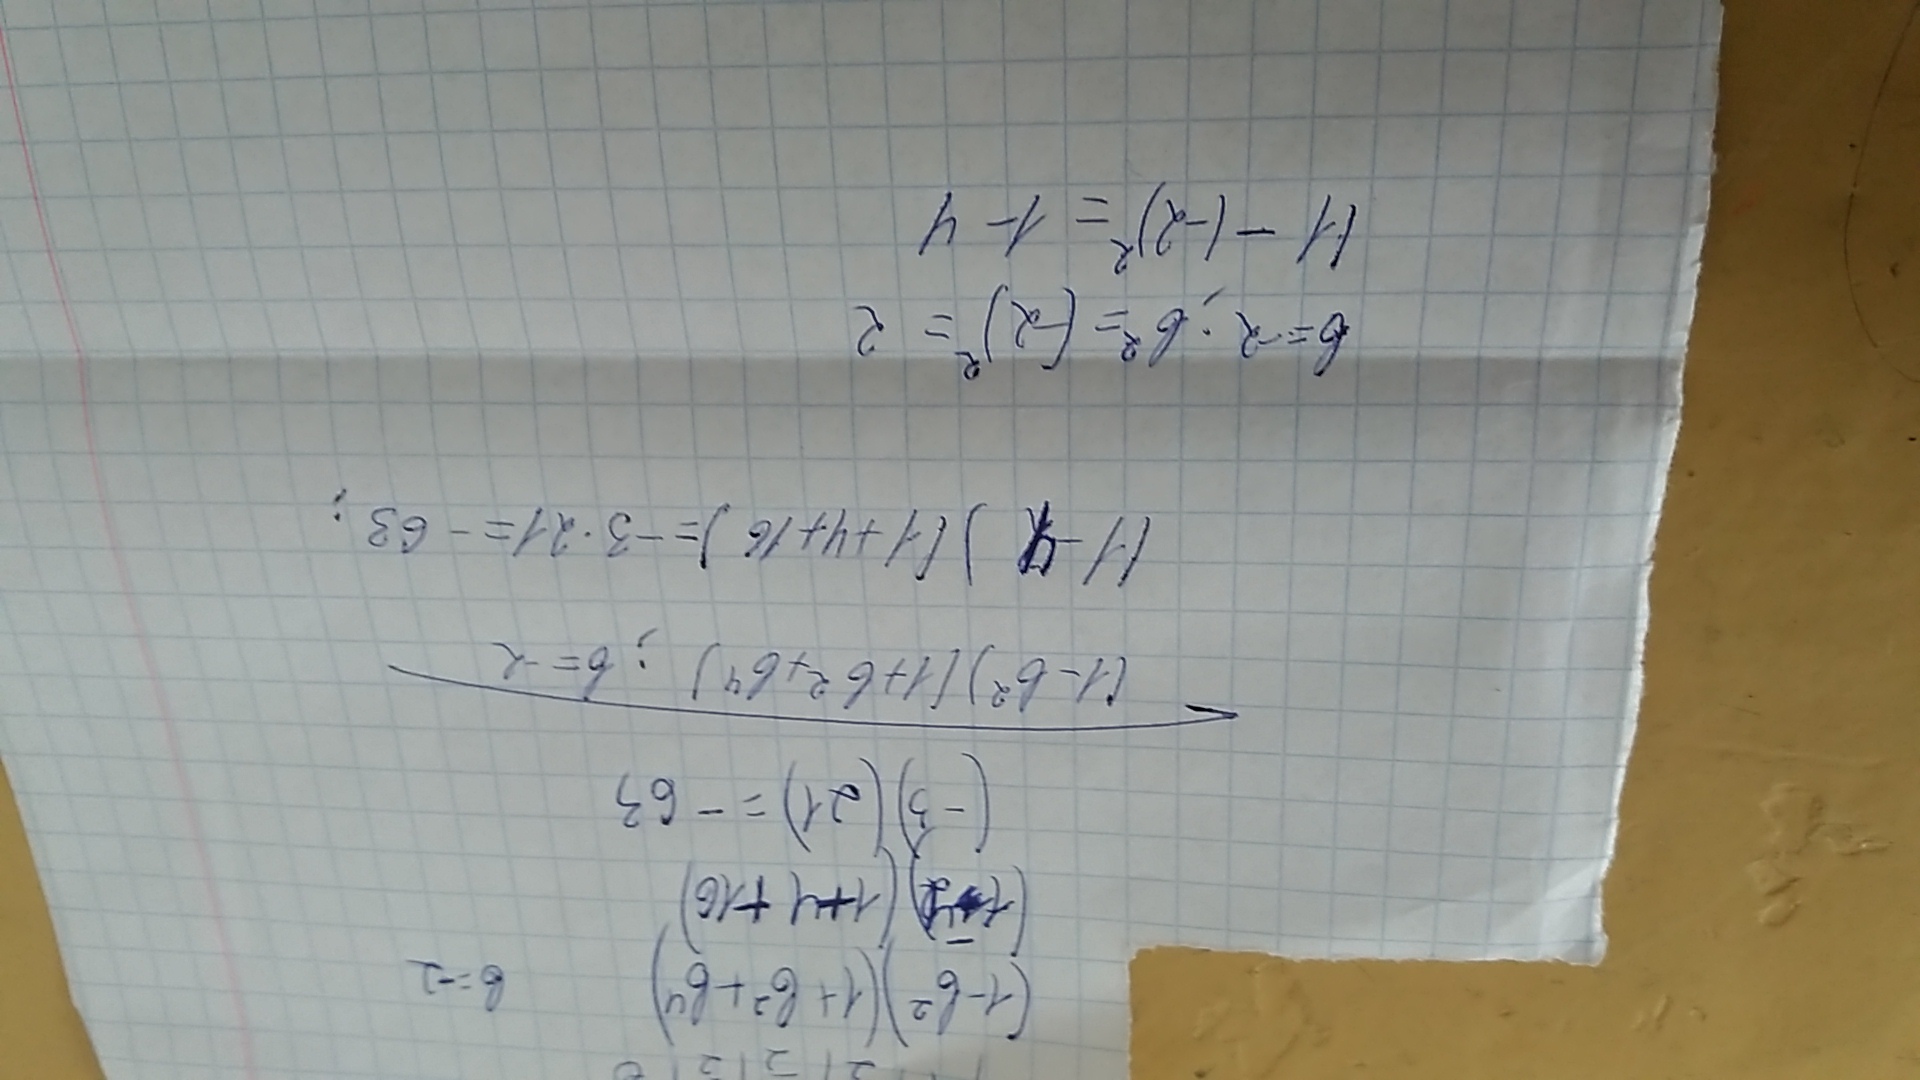 (1-b²)(1+b²+b⁴) b=-2
(1-4)(1+4+16)
(-3)(21)=-63
(1-b²)(1+b²+b⁴); b=-2
(1-4)(1+4+16)=-3·21=-63;
b=-2; b²=(-2)²= 2
(1-(-2)²=1-4